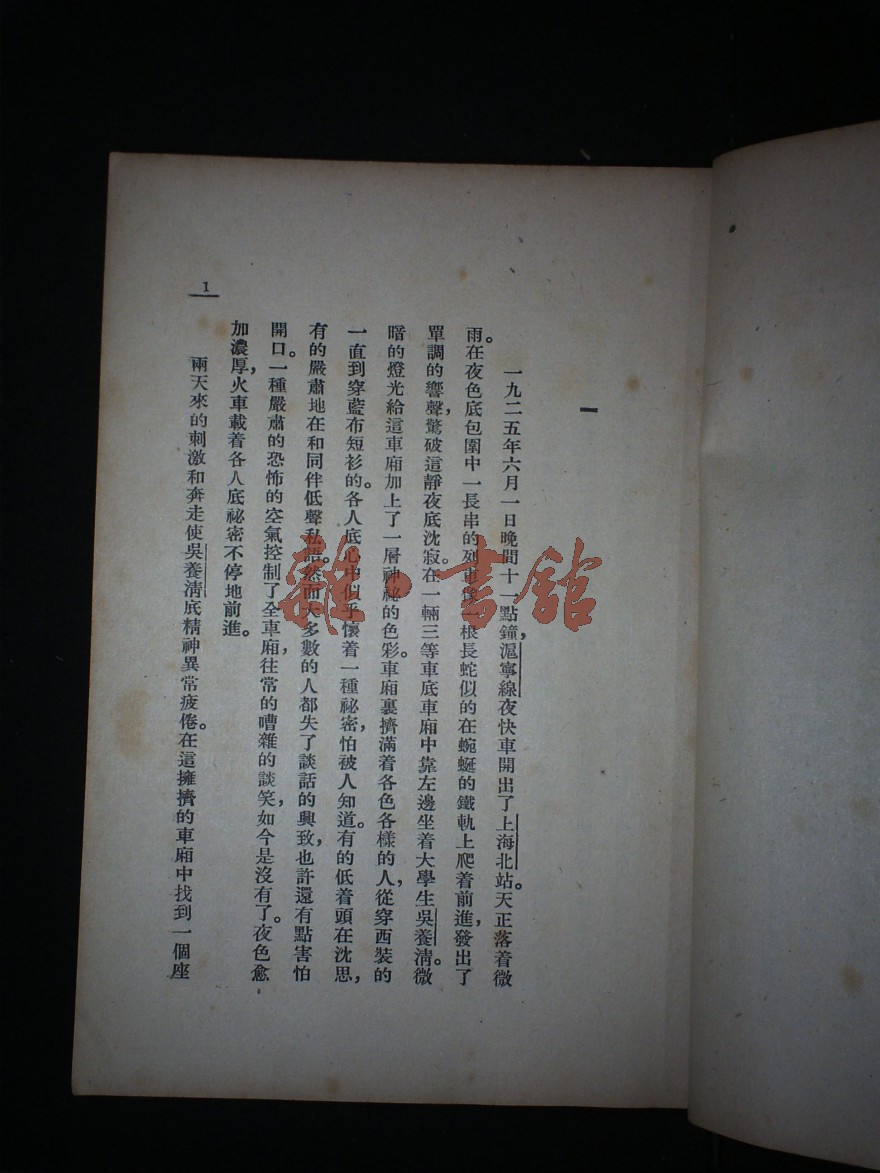 一
一九二五年六月一日晚間十一點鐘，滬寧線夜快車開出了上海北站。天正落着微
雨。在夜色底包圍中一長串的列車像一根長蛇似的在蜿蜒的鐵軌上爬着前進，發出了
單調的響聲，驚破這靜夜底沈寂。在一輛三等車底車廂中靠左邊坐着大學生吳養清。微
暗的燈光給這車廂加上了一層神祕的色彩。車廂裏擠滿着各色各樣的人，從穿西裝的
一直到穿藍布短衫的。各人底心中似乎懷着一種祕密，怕被人知道。有的低着頭在沈思，
有的嚴肅地在和同伴低聲私語。然而大多數的人都失了談話的興致，也許還有點害怕
開口。一種嚴肅的恐怖的空氣控制了全車廂，往常的嘈雜的談笑，如今是沒有了。夜色愈
加濃厚，火車載着各人底祕密不停地前進。
兩天來的刺激和奔走使吳養清底精神異常疲倦。在這擁擠的車廂中找到一個座
1
雜·書館